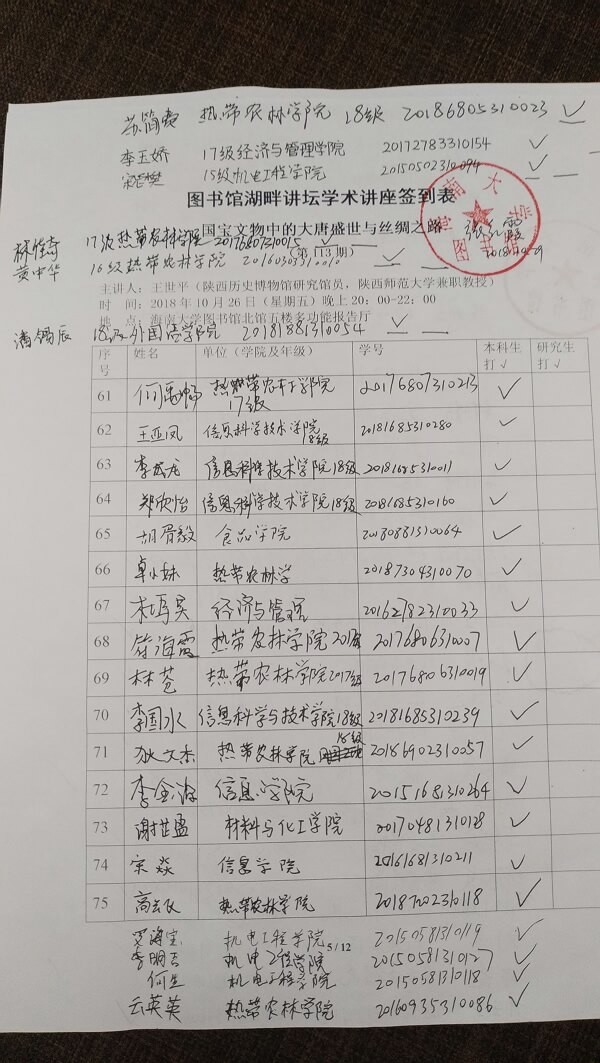 苏简菱 热带农林学院 18级 20186805310023 ✓
李玉娇 17级经济与管理学院 20172783310154 ✓
宋艺樊 15级机电工程学院 20150502310094 ✓
图书馆湖畔讲坛学术讲座签到表
国宝文物中的大唐盛世与丝绸之路
林 17级热带农林学院 20176807310015 ✓
(第113期)
黄中华 16级热带农林学院 20160303310010 ✓
主讲人:王世平(陕西历史博物馆研究馆员,陕西师范大学兼职教授)
时 间:2018年10月26日(星期五)晚上20:00-22:00
地 点:海南大学图书馆北馆五楼多功能报告厅
潘锡辰 18级外国语学院 20181881310054 ✓
序号 姓名 单位(学院及年级) 学号 本科生打√ 研究生打√
61 何禹畅 热带农林学院 17级 20176807310213 ✓
62 王亚凤 信息科学技术学院 18级 20181685310280 ✓
63 李成龙 信息科学技术学院18级 20181685310011 ✓
64 郑欣怡 信息科学技术学院18级 20181685310160 ✓
65 胡骨毅 食品学院 20180881310064 ✓
66 卓小妹 热带农林学 20187304310070 ✓
67 经济与管理 20162782310033 ✓
68 符海霞 热带农林学院2017级 20176806310007 ✓
69 林苍 热带农林学院2017级 20176806310019 ✓
70 李国水 信息科学与技术学院18级 20181685310239 ✓
71 狄文杰 热带农林学院 18级 20186902310057 ✓
72 李金源 信息学院 20151681310264 ✓
73 谢世盛 材料与化工学院 20170481310128 ✓
74 宋焱 信息学院 20161681310211 ✓
75 热带农林学院 20187202310118 ✓
5 / 12
罗海宝 机电工程学院 20150581310119 ✓
李明吉 机电工程学院 20150581310127 ✓
何生 机电工程学院 20150581310118 ✓
云英英 热带农林学院 20160935310086 ✓